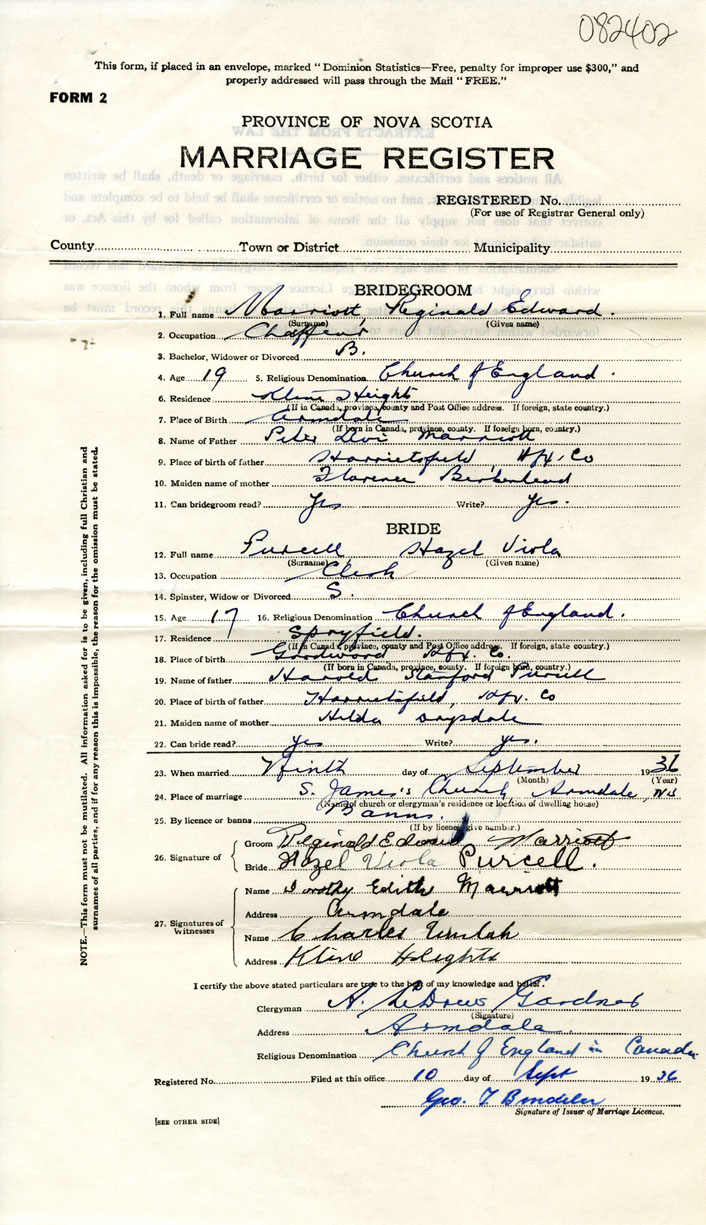 082402
This form, if placed in an envelope, marked "Dominion Statistics—Free, penalty for improper use $300," and
properly addressed will pass through the Mail "FREE."
FORM 2
PROVINCE OF NOVA SCOTIA
MARRIAGE REGISTER
REGISTERED No.
(For use of Registrar General only)
County Town or District Municipality
BRIDEGROOM
1. Full name Marriott, Reginald Edward.
(Surname) (Given name)
2. Occupation
3. Bachelor, Widower or Divorced B.
4. Age 19 5. Religious Denomination Church of England.
6. Residence Kline Height
(If in Canada, province, county and Post Office address. If foreign, state country.)
7. Place of Birth Armdale
(If born in Canada, province, county. If foreign born, country.)
8. Name of Father Peter Levi Marriott
9. Place of birth of father Harrietsfield Hfx. Co
10. Maiden name of mother Florence
11. Can bridegroom read? Yes Write? Yes.
BRIDE
12. Full name Purcell Hazel Viola
(Surname) (Given name)
13. Occupation Clerk
14. Spinster, Widow or Divorced S.
15. Age 17 16. Religious Denomination Church of England.
17. Residence Spryfield.
(If in Canada, province, county and Post Office address. If foreign, state country.)
18. Place of birth Goodwood Hfx. Co.
(If born in Canada, province, county. If foreign born, country.)
19. Name of father Harold Stanford Purcell
20. Place of birth of father Harrietsfield, Hfx. Co
21. Maiden name of mother Hilda Drysdale
22. Can bride read? yes Write? yes.
23. When married Ninth day of September 1936
(Month) (Year)
24. Place of marriage S. James's Church, Armdale, NS
(Name of church or clergyman's residence or location of dwelling house)
25. By licence or banns Banns.
(If by licence give number.)
26. Signature of Groom Reginald Edward Marriott
Bride Hazel Viola Purcell.
27. Signatures of Witnesses Name Dorothy Edith Marriott
Address Armdale
Name Charles Umlah
Address Kline Heights
I certify the above stated particulars are true to the best of my knowledge and belief.
Clergyman A. Gardner
(Signature)
Address Armdale
Religious Denomination Church of England in Canada
Registered No. Filed at this office 10 day of Sept 1936
Geo. T.
Signature of Issuer of Marriage Licences.
[SEE OTHER SIDE]
NOTE.—This form must not be mutilated. All information asked for is to be given, including full Christian and
surnames of all parties, and if for any reason this is impossible, the reason for the omission must be stated.